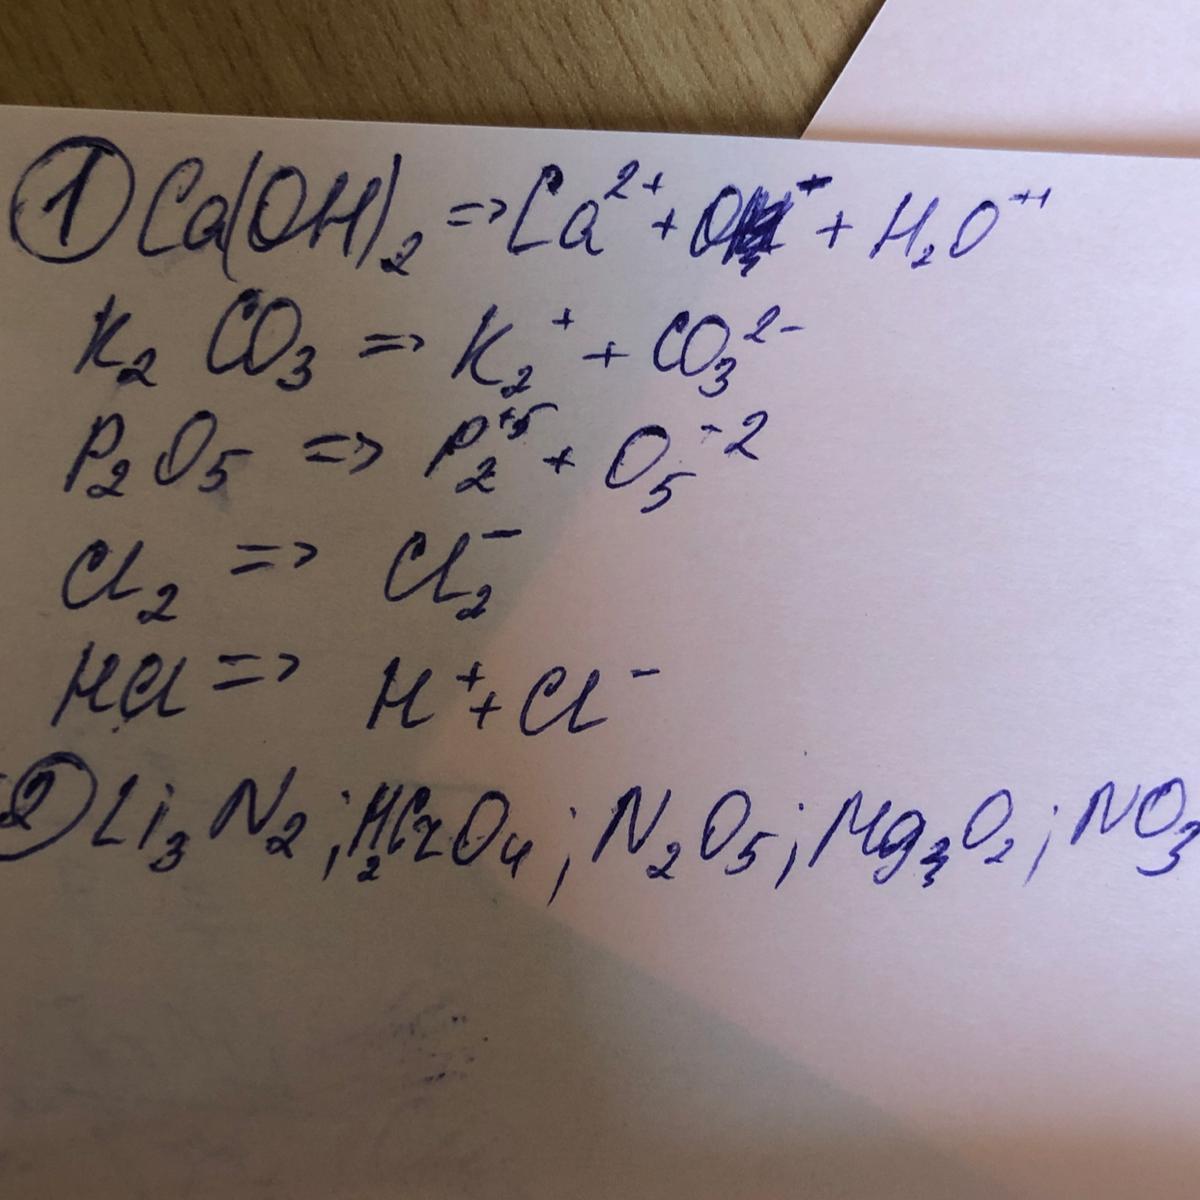 ① Ca(OH)₂ => Ca²⁺ + O + H₂O⁺
K₂ CO₃ => K₂⁺ + CO₃²⁻
P₂O₅ => P₂⁺⁵ + O₅⁻²
Cl₂ => Cl₂⁻
HCl => H⁺ + Cl⁻
② Li₃N₂; H₂CrO₄; N₂O₅; Mg₃O₂; NO₃